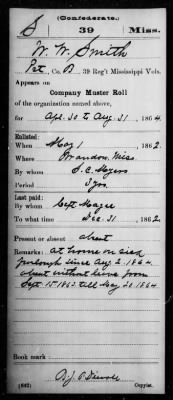 (Confederate.)
S 39 Miss.
W. W. Smith
Pvt, Co. B, 39 Reg't Mississippi Vols.
Appears on
Company Muster Roll
of the organization named above,
for Apr. 30 to Aug 31, 1864.
Enlisted:
When May 1, 1862.
Where Brandon, Miss
By whom S. C. Myers
Period 3 yrs.
Last paid:
By whom Capt Magee
To what time Dec. 31, 1862.
Present or absent absent
Remarks: at home on sick
furlough since Aug 2. 1864.
absent without leave from
Sept. 15. 1863 till May 20. 1864.
Book mark:
(642) Copyist.